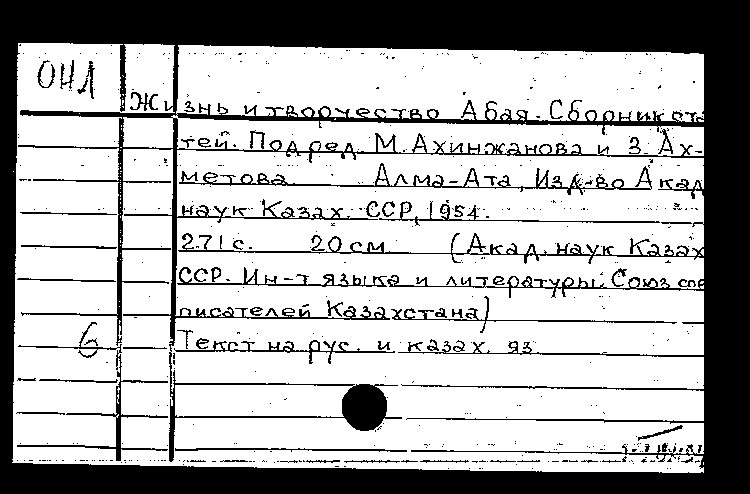 ОНЛ
Жизнь и творчество Абая. Сборник ста
тей. Под ред. М. Ахинжанова и З. Ах-
метова. Алма-Ата, Изд-во Акад
наук Казах. ССР, 1954.
271 с. 20 см (Акад. наук Казах
ССР. Ин-т языка и литературы. Союз сов
писателей Казахстана)
6 Текст на рус. и казах. яз